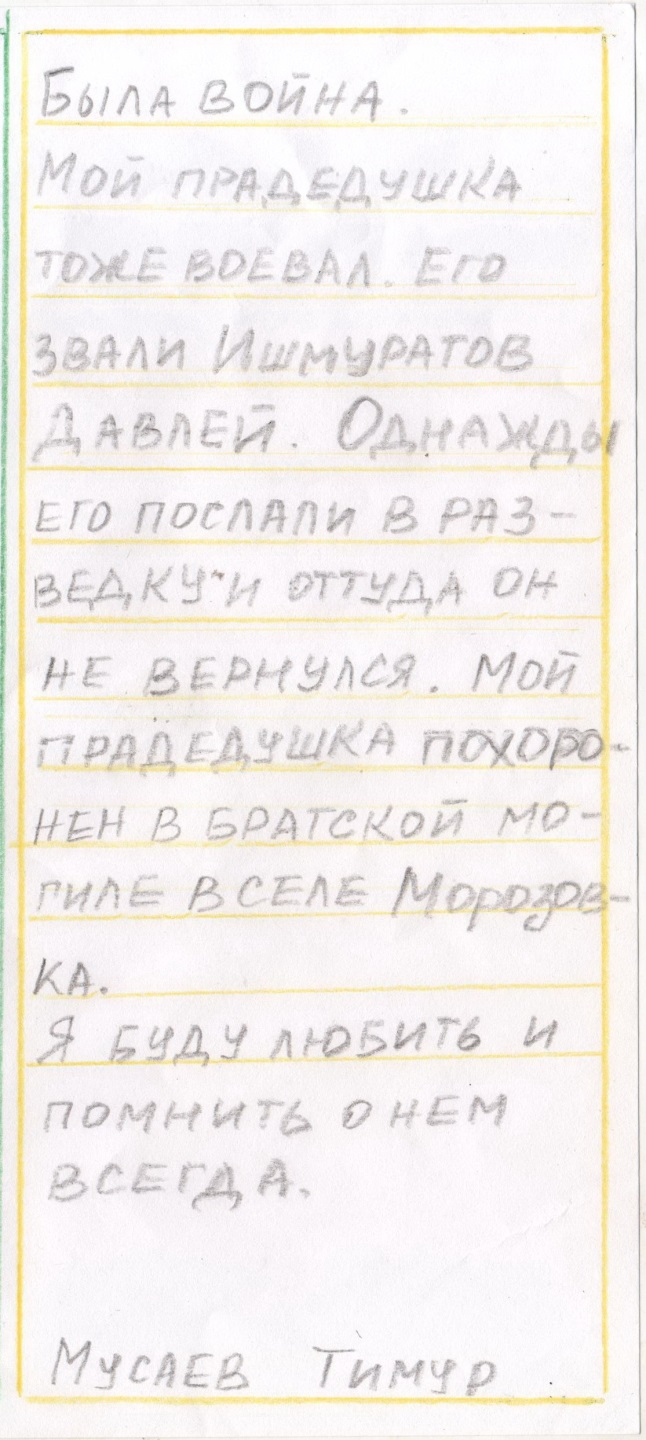 Была война.
Мой прадедушка
тоже воевал. Его
звали Ишмуратов
Давлей. Однажды
его послали в раз-
ведку и оттуда он
не вернулся. Мой
прадедушка похоро-
нен в братской мо-
гиле в селе Морозов-
ка.
Я буду любить и
помнить о нем
всегда.
Мусаев Тимур